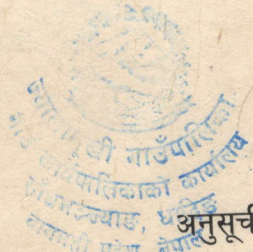 ज्वालामुखी गाउँपालिका
गाउँ कार्यपालिकाको कार्यालय
धादिङ
बागमती प्रदेश, नेपाल
अनुसूची